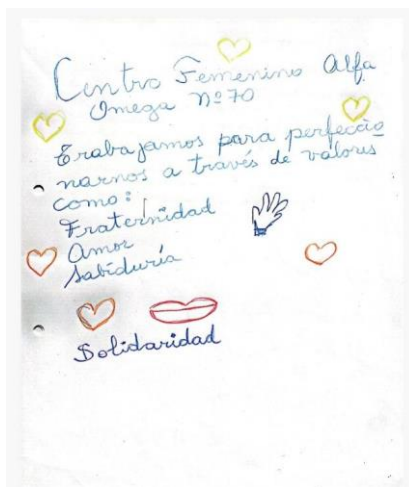 Centro Femenino Alfa
Omega nº 70
Trabajamos para perfeccio
narnos a través de valores
como:
Fraternidad
Amor
Sabiduría
Solidaridad